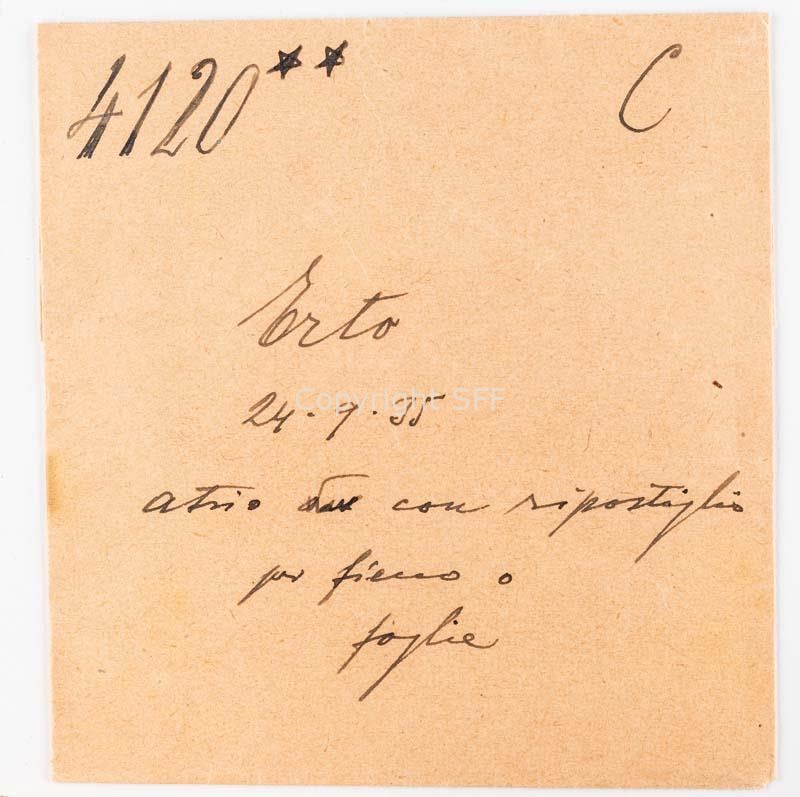 4120** C
Erto
Copyright SFF
24.9.35
atrio con ripostiglio
per fieno o
foglie